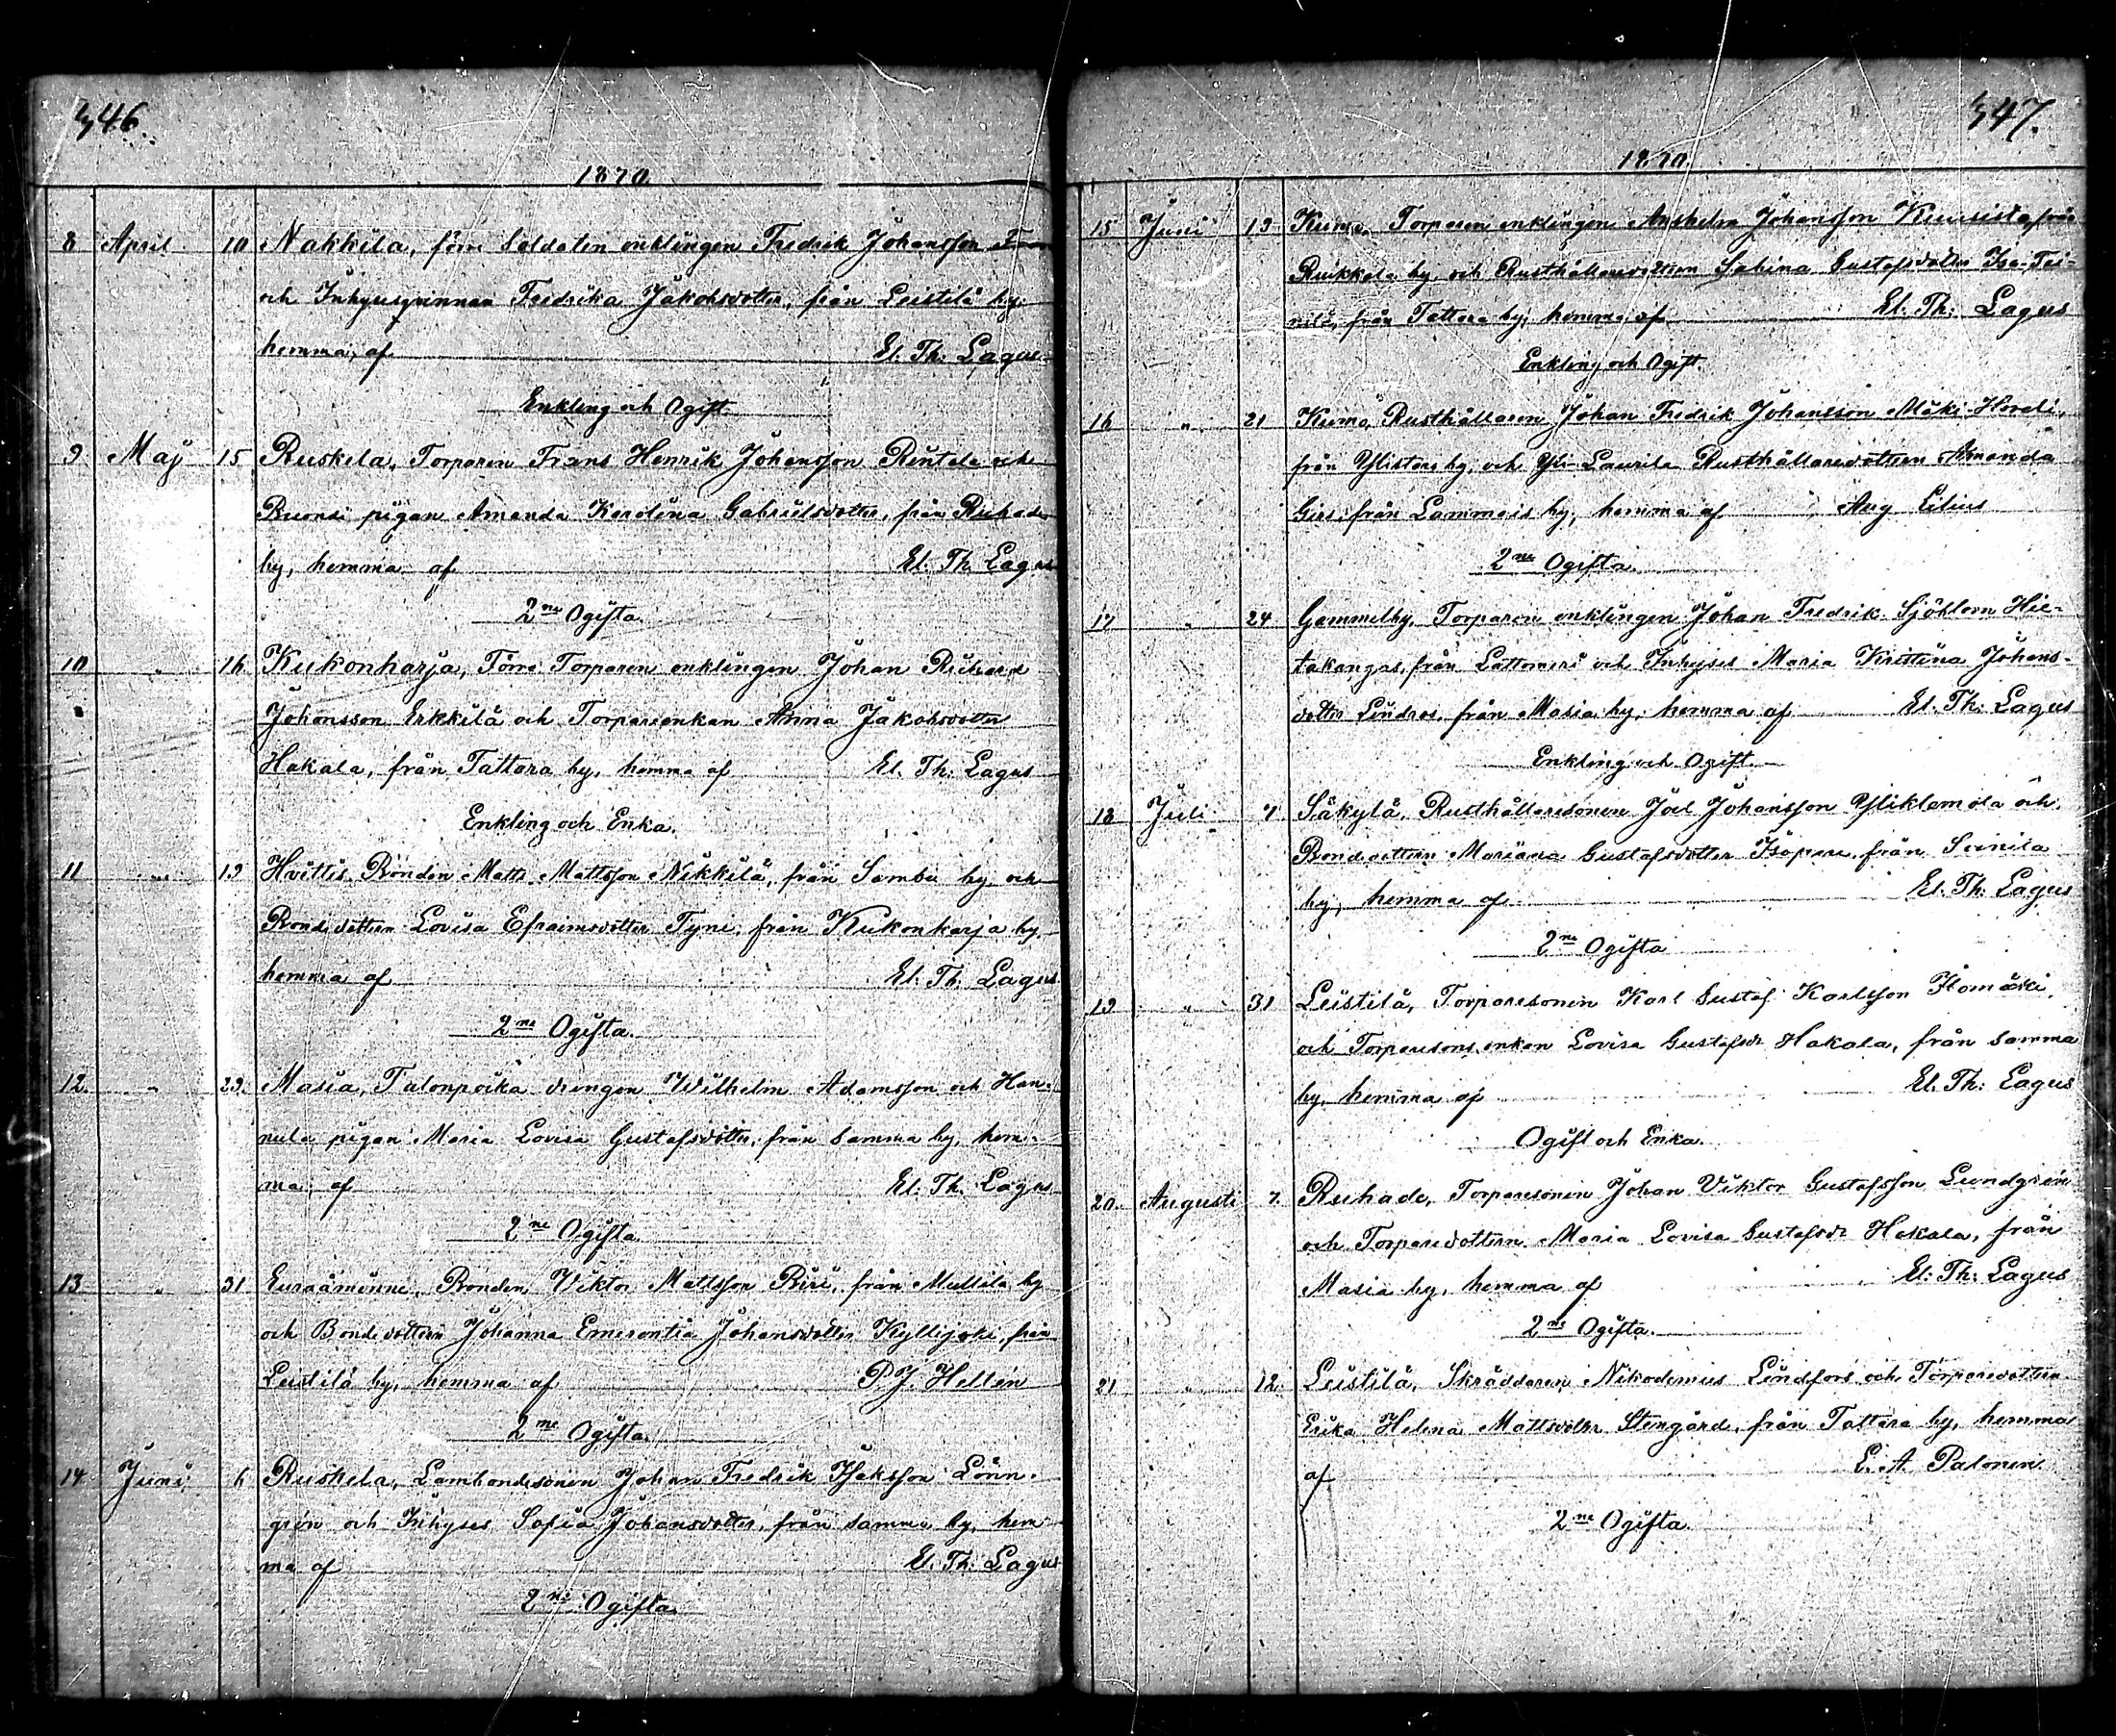 346.
1870.
8 April 10 Nakkila, förre Soldaten enklingen Fredrik Johansson
och Inhysesqvinnan Fredrika Jakobsdotter, från Leistilä by,
hemma, af El. Th: Lagus
Enkling och Ogift.
9 Maj 15 Ruskela, Torparen Frans Henrik Johansson Rintala och
pigan Amanda Karolina Gabrielsdotter, från Ruhade
by, hemma af El. Th. Lagus
2ne Ogifta.
10 " 16 Kukonharja, Förre Torparen enklingen Johan Richard
Johansson Erkkilä och Torpareenkan Anna Jakobsdotter
Hakala, från Tattara by, hemma af El. Th: Lagus
Enkling och Enka.
11 " 19 Hvittis, Bonden Matts Mattsson Nikkilä, från Sambu by och
Bondedottern Lovisa Efraimsdotter Tyni, från Kukonharja by,
hemma af El. Th. Lagus
2ne Ogifta.
12. " 29. Masia, Talonpoika drengen Wilhelm Adamsson och Han-
nula pigan Maria Lovisa Gustafsdotter, från samma by, hem-
ma, af El. Th. Lagus
2ne Ogifta
13 " 31 Euraåminne, Bonden Viktor Mattsson Piri, från Mullila by
och Bondedottern Johanna Emerentia Johansdotter Kyllijoki, från
Leistilä by, hemma af P. J. Hellén
2ne Ogifta.
14 Juni 6 Ruskela, Lambondesonen Johan Fredrik Isaksson Lönn-
grén och Inhyses Sofia Johansdotter, från samma by, hem-
ma af El. Th: Lagus
2ne Ogifta.
347.
1870.
15 Juni 19 Kumo, Torparen enklingen Anshelm Johansson Kuusisto, från
Ruikkala by, och Rusthållaredottern Sabina Gustafsdotter Iso-Tei-
nilä, från Tattara by, hemma af El. Th: Lagus
Enkling och Ogift.
16 " 21 Kumo, Rusthållaren Johan Fredrik Johansson Mäki-Horeli,
från Ylistaro by, och Yli-Laurila Rusthållaredottern Amanda
från Lammais by, hemma af Aug Lilius
2ne Ogifta.
17 " 24 Gammelby, Torparen enklingen Johan Fredrik Sjöblom Hie-
takangas, från Lattomeri och Inhyses Maria Kristina Johans-
dotter Lindros, från Masia by, hemma af El. Th: Lagus
Enkling och Ogift.
18 Juli 7 Säkylä, Rusthållaresonen Joel Johansson Yliklemola och
Bondedottern Mariana Gustafsdotter Isopere, från Soinila
by, hemma af El. Th: Lagus
2ne Ogifta
19 " 31 Leistilä, Torparesonen Karl Gustaf Karlsson Ilomäki,
och Torparesons enkan Lovisa Gustafsdr Hakala, från samma
by, hemma af El. Th: Lagus
Ogift och Enka.
20. Augusti 7. Ruhade, Torparesonen Johan Viktor Gustafsson Lundgrén
och Torparedottern Maria Lovisa Gustafsdr Hakala, från
Masia by, hemma af El: Th: Lagus
2ne Ogifta.
21 " 12 Leistilä, Skräddaren Nikodemus Lindfors och Torparedottern
Erika Helena Mattsdotter Stengård, från Tattara by, hemma
af E. A. Palonen
2ne Ogifta.